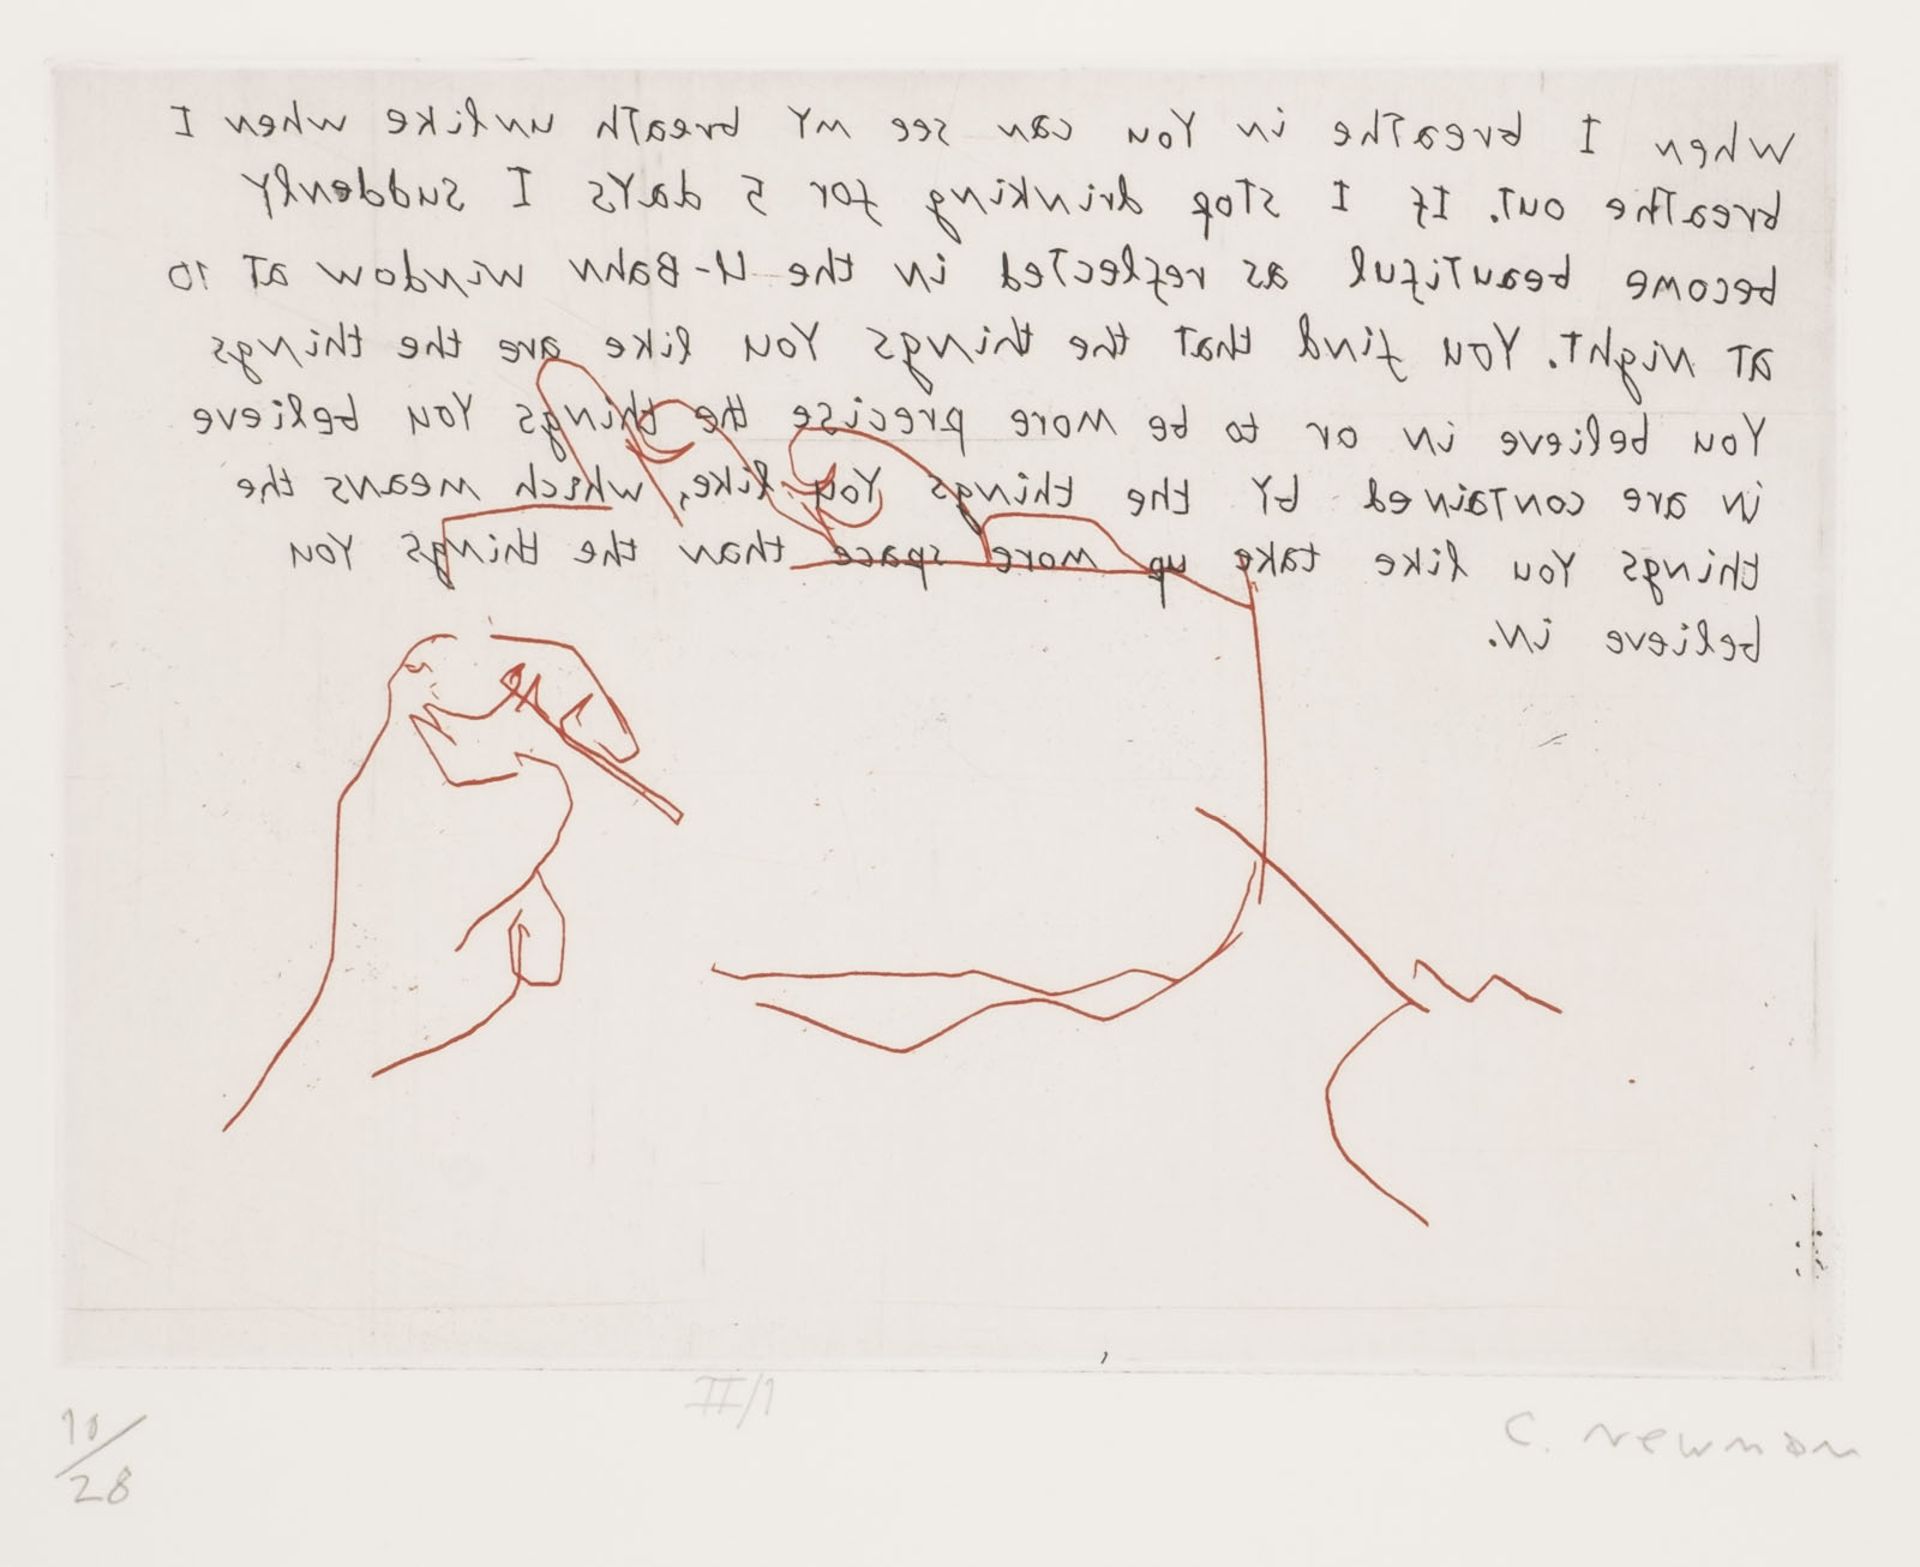 When I breathe in You can see my breath unlike when I
breathe out. If I stop drinking for 5 days I suddenly
become beautiful as reflected in the U-Bahn window at 10
at Night. You find that the things You like are the things
You believe in or to be more precise the things You believe
in are contained by the things You like, which means the
things You like take up more space than the things You
believe in.
II/1
C. Newman
11/28